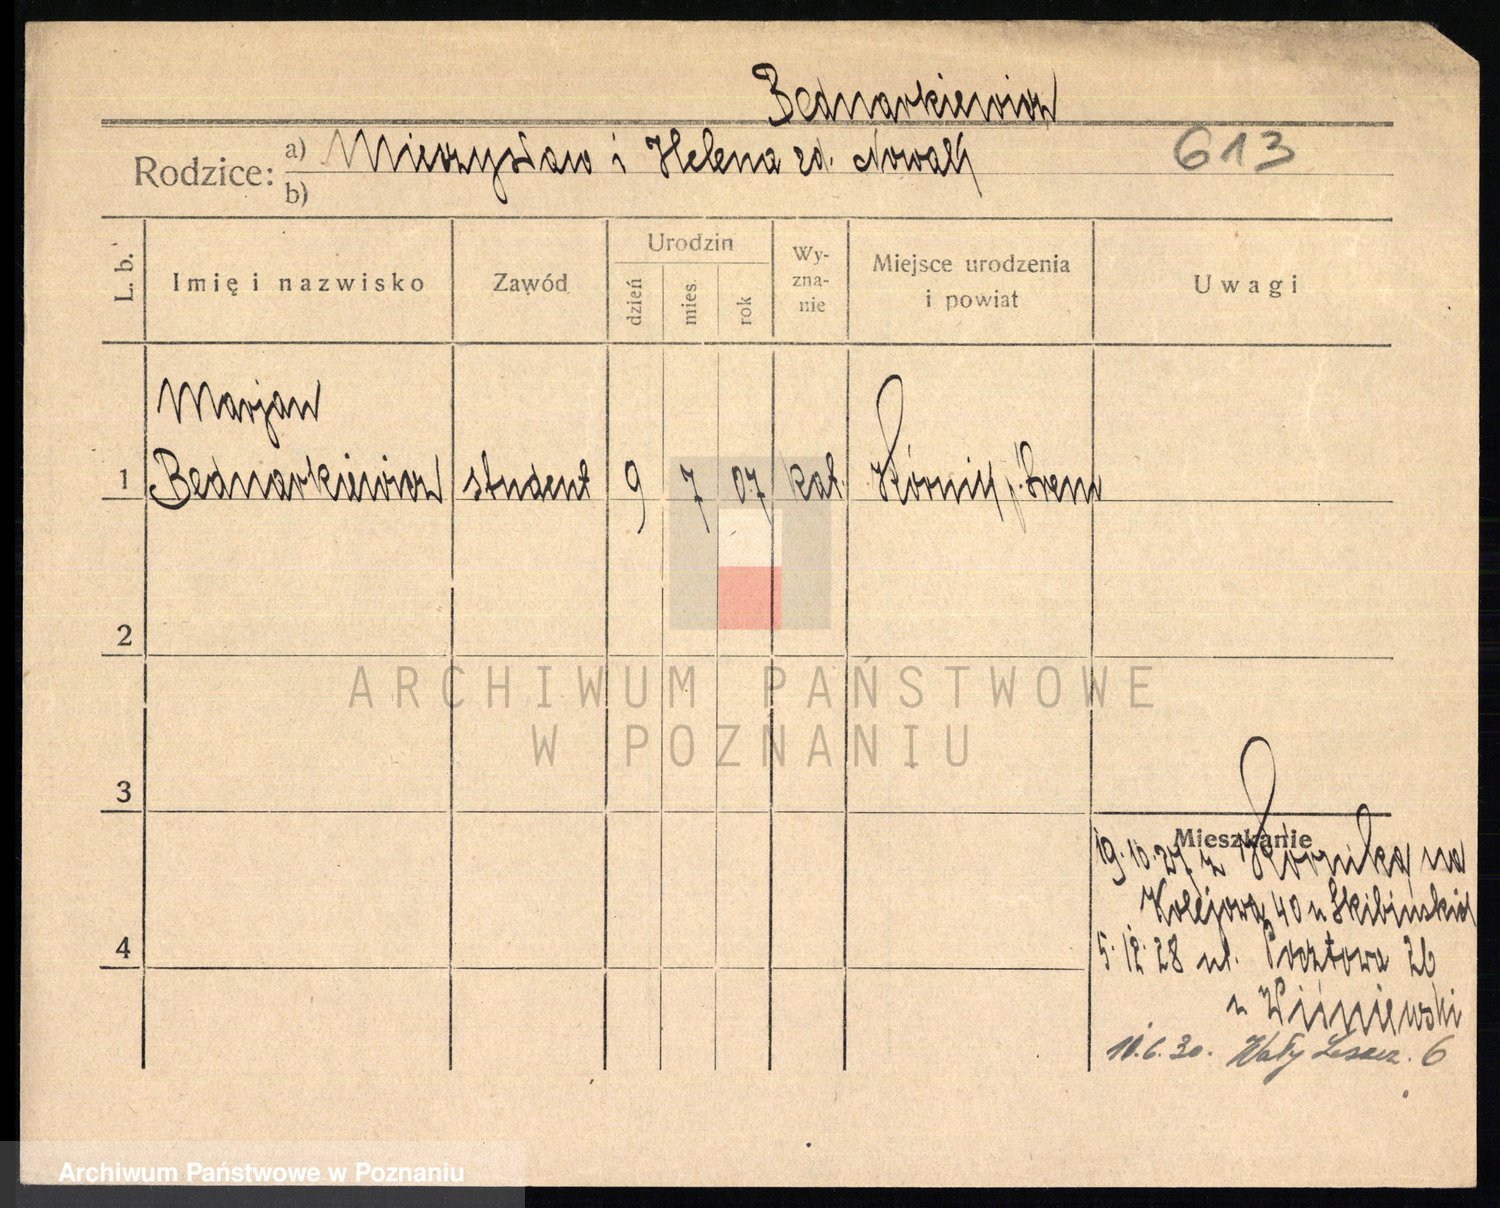 Bednarkiewicz
Rodzice: a) Mieczysław i Helena zd. Nowak
613
b)
L. b.
Imię i nazwisko
Zawód
Urodzin
dzień
mies.
rok
Wy-
zna-
nie
Miejsce urodzenia
i powiat
Uwagi
Marjan
1 Bednarkiewicz student 9 7 07 kat. Kórnik p. Śrem
2
ARCHIWUM PAŃSTWOWE
W POZNANIU
3
Mieszkanie
19.10.27 z Kórnika na
Kolejowa 40 u Skibińskich
4
5.12.28 ul. Pocztowa 26
u Wiśniewski
11.6.30. Wały Leszcz. 6
Archiwum Państwowe w Poznaniu